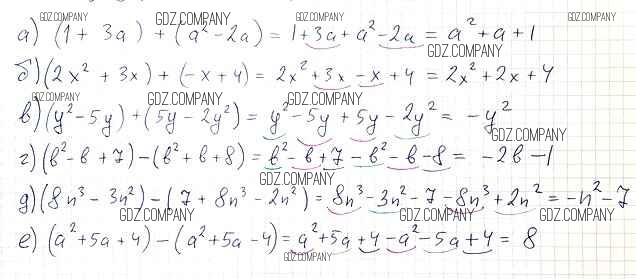 GDZ.COMPANY GDZ.COMPANY GDZ.COMPANY
а) (1 + 3a) + (a² - 2a) = 1 + 3a + a² - 2a = a² + a + 1
GDZ.COMPANY
б) (2x² + 3x) + (-x + 4) = 2x² + 3x - x + 4 = 2x² + 2x + 4
GDZ.COMPANY GDZ.COMPANY GDZ.COMPANY
в) (y² - 5y) + (5y - 2y²) = y² - 5y + 5y - 2y² = -y²
GDZ.COMPANY
г) (b² - b + 7) - (b² + b + 8) = b² - b + 7 - b² - b - 8 = -2b - 1
GDZ.COMPANY GDZ.COMPANY
д) (8n³ - 3n²) - (7 + 8n³ - 2n²) = 8n³ - 3n² - 7 - 8n³ + 2n² = -n² - 7
GDZ.COMPANY GDZ.COMPANY GDZ.COMPANY
е) (a² + 5a + 4) - (a² + 5a - 4) = a² + 5a + 4 - a² - 5a + 4 = 8
GDZ.COMPANY